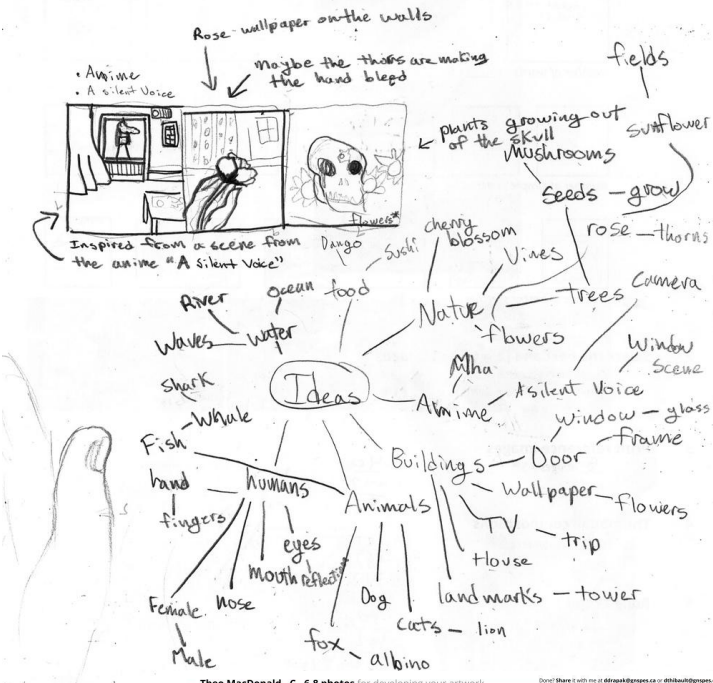 Rose wallpaper on the walls
• Anime
• A silent Voice
Maybe the thorns are making
the hand bleed
plants growing out
of the skull
flowers*
Inspired from a scene from
the anime "A silent Voice"
fields
sunflower
Mushrooms
seeds – grow
rose – thorns
cherry
blossom
Vines
trees
Natur
flowers
Camera
Window
Scene
Dango
Sushi
food
Ocean
River
Waves
Water
Ideas
Mha
Anime
A silent Voice
window – glass
frame
Buildings
Door
Wallpaper – flowers
TV
trip
House
landmarks – tower
shark
Whale
Fish
hand
fingers
humans
eyes
reflection
mouth
nose
Female
Male
Animals
Dog
cats – lion
fox – albino
Theo MacDonald - C - 6-8 photos for developing your artwork
Done? Share it with me at ddrapak@gnspes.ca or dthibault@gnspes.